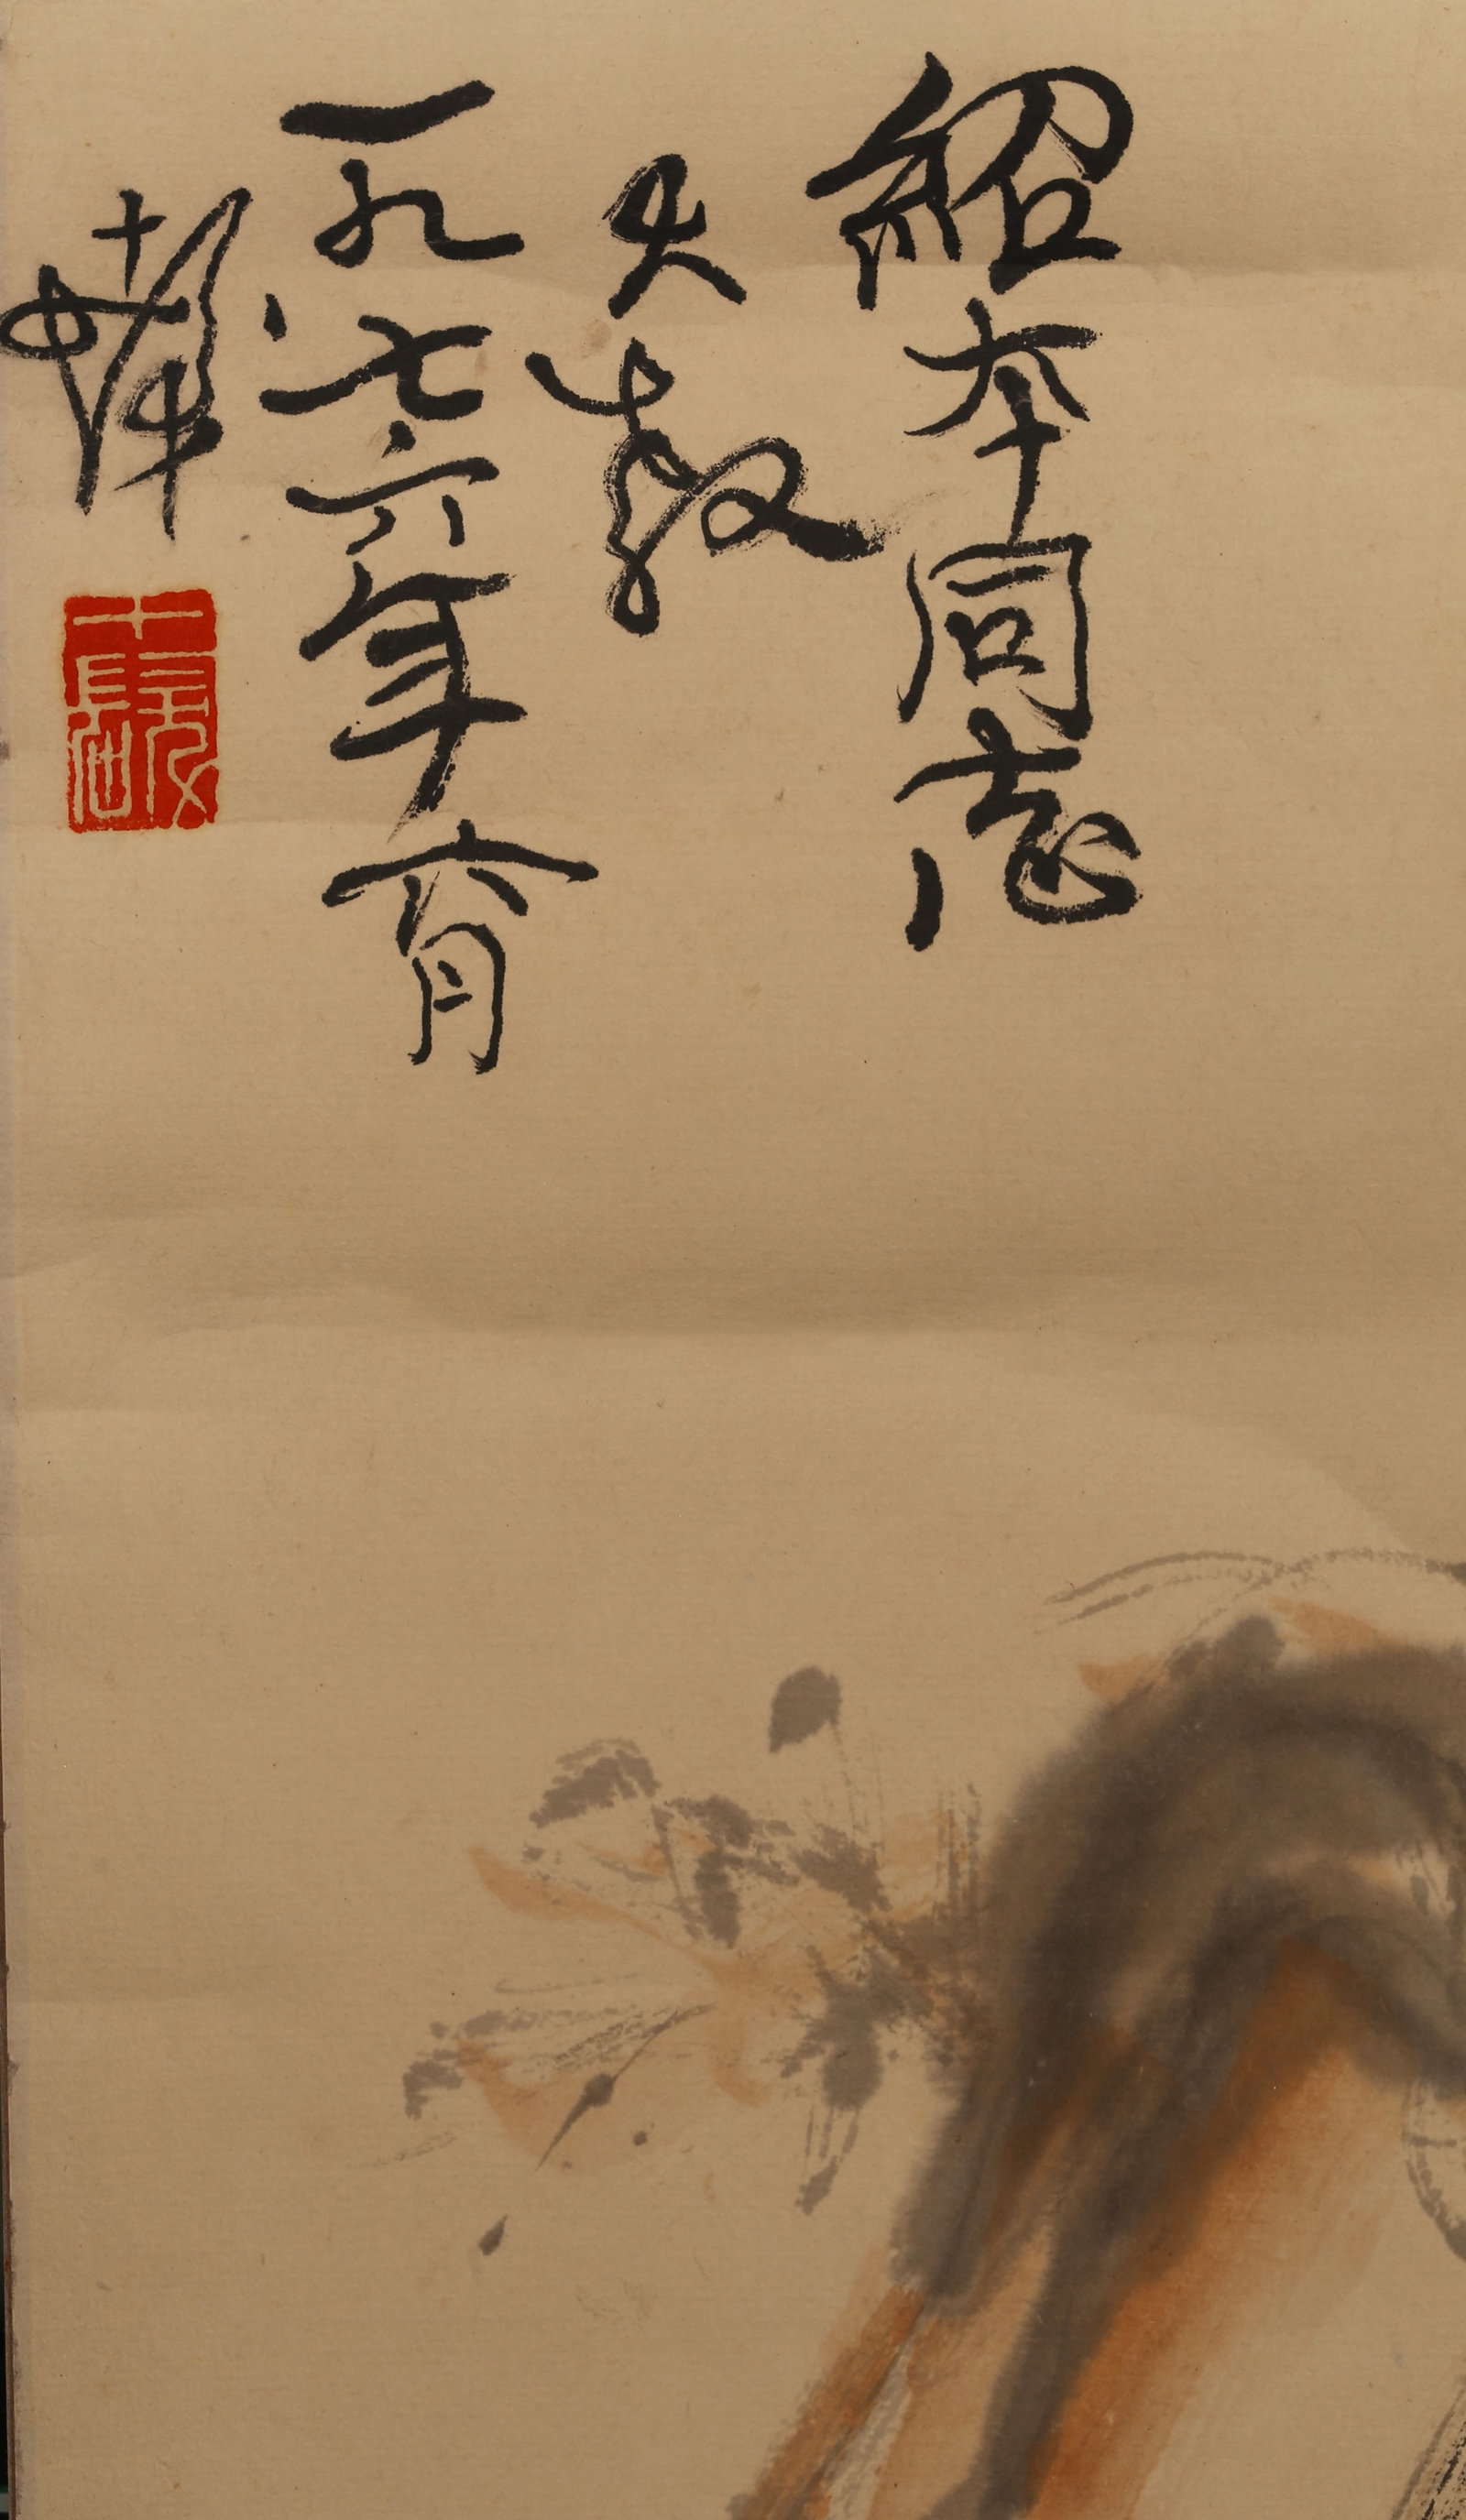 紹本同志
大教
一九七六年六月
十髮